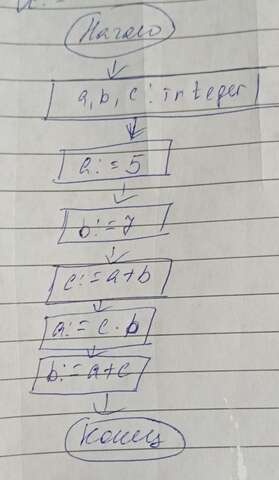 Начало
a, b, c : integer
a:=5
b:=7
c:=a+b
a:=c·b
b:=a+c
Конец